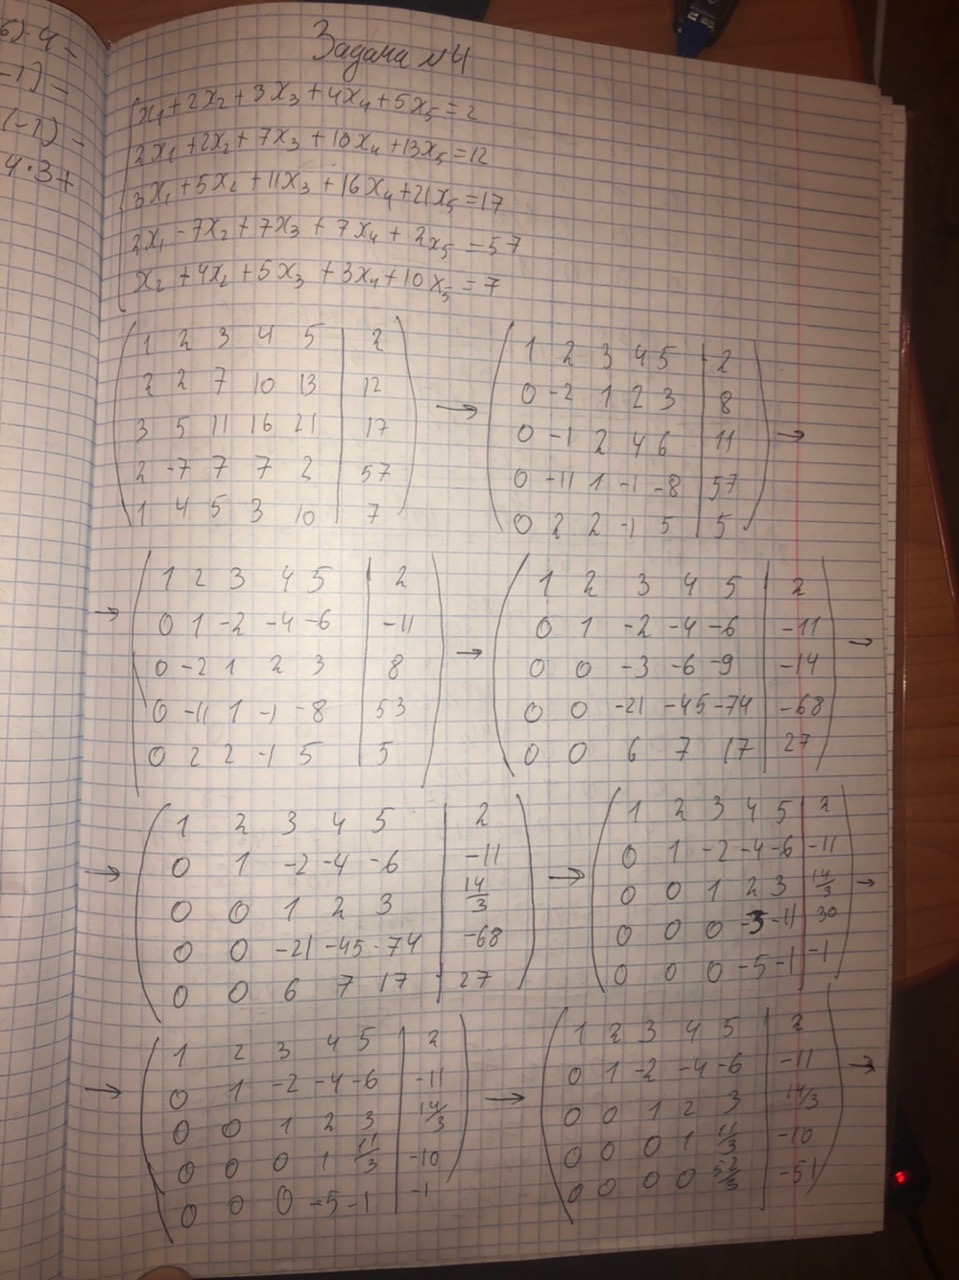 6)·4 =
-1) =
(-1) =
4·3+
Задача №4
x₁ + 2x₂ + 3x₃ + 4x₄ + 5x₅ = 2
2x₁ + 2x₂ + 7x₃ + 10x₄ + 13x₅ = 12
3x₁ + 5x₂ + 11x₃ + 16x₄ + 21x₅ = 17
2x₁ - 7x₂ + 7x₃ + 7x₄ + 2x₅ = 57
x₂ + 4x₂ + 5x₃ + 3x₄ + 10x₅ = 7
1 2 3 4 5 | 2
2 2 7 10 13 | 12
3 5 11 16 21 | 17
2 -7 7 7 2 | 57
1 4 5 3 10 | 7
→
1 2 3 4 5 | 2
0 -2 1 2 3 | 8
0 -1 2 4 6 | 11
0 -11 1 -1 -8 | 57
0 2 2 -1 5 | 5
→
→
1 2 3 4 5 | 2
0 1 -2 -4 -6 | -11
0 -2 1 2 3 | 8
0 -11 1 -1 -8 | 53
0 2 2 -1 5 | 5
→
1 2 3 4 5 | 2
0 1 -2 -4 -6 | -11
0 0 -3 -6 -9 | -14
0 0 -21 -45 -74 | -68
0 0 6 7 17 | 27
→
→
1 2 3 4 5 | 2
0 1 -2 -4 -6 | -11
0 0 1 2 3 | 14/3
0 0 -21 -45 -74 | -68
0 0 6 7 17 | 27
→
1 2 3 4 5 | 2
0 1 -2 -4 -6 | -11
0 0 1 2 3 | 14/3
0 0 0 -3 -11 | 30
0 0 0 -5 -1 | -1
→
→
1 2 3 4 5 | 2
0 1 -2 -4 -6 | -11
0 0 1 2 3 | 14/3
0 0 0 1 11/3 | -10
0 0 0 -5 -1 | -1
→
1 2 3 4 5 | 2
0 1 -2 -4 -6 | -11
0 0 1 2 3 | 14/3
0 0 0 1 11/3 | -10
0 0 0 0 52/3 | -51
→